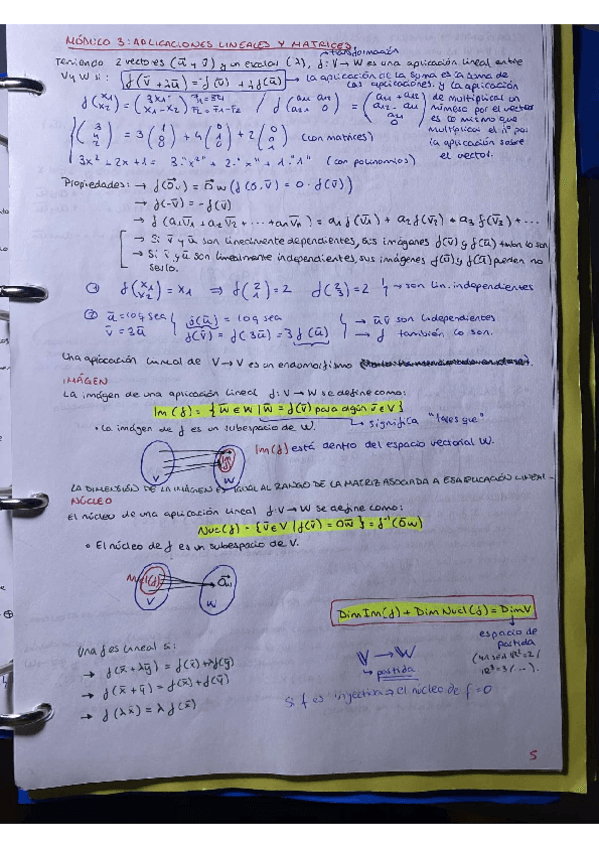 MÓDULO 3: APLICACIONES LINEALES Y MATRICES
transformación
Teniendo 2 vectores (ū y v̄) y un escalar (λ), f: V → W es una aplicación lineal entre
V y W si: f(v̄ + λū) = f(v̄) + λf(ū) → la aplicación de la suma es la suma de
las aplicaciones, y la aplicación
de multiplicar un
número por el vector
es lo mismo que
multiplicar el nº por
la aplicación sobre
el vector.
f(x₁ x₂) = (3x₁ x₁-x₂)
(3 4 2) = 3(1 0 0) + 4(0 1 0) + 2(0 0 1) (con matrices)
3x² + 2x + 1 = 3·"x²" + 2·"x" + 1·"1" (con polinomios)
Propiedades: → f(0̄v) = 0̄w (f(0·v̄) = 0·f(v̄))
→ f(-v̄) = -f(v̄)
→ f(a₁v̄₁ + a₂v̄₂ + ... + anv̄n) = a₁f(v̄₁) + a₂f(v̄₂) + a₃f(v̄₃) + ...
→ Si v̄ y ū son linealmente dependientes, sus imágenes f(v̄) y f(ū) también lo son
→ Si v̄ y ū son linealmente independientes, sus imágenes f(v̄) y f(ū) pueden no
serlo.
f(x₁ x₂) = x₁ ⇒ f(2 1) = 2 f(2 3) = 2 → son lin. independientes
ū = lo q sea f(ū) = lo q sea → ū v̄ son independientes
v̄ = 3ū f(v̄) = f(3ū) = 3f(ū) → f también lo son.
Una aplicación lineal de V → V es un endomorfismo
IMÁGEN
La imágen de una aplicación lineal f: V → W se define como:
Im(f) = {w̄ ∈ W | w̄ = f(v̄) para algún v̄ ∈ V}
• La imagen de f es un subespacio de W. → significa "tales que"
Im(f) está dentro del espacio vectorial W.
V W
LA DIMENSIÓN DE LA IMÁGEN ES IGUAL AL RANGO DE LA MATRIZ ASOCIADA A ESA APLICACIÓN LINEAL
NÚCLEO
El núcleo de una aplicación lineal f: V → W se define como:
Nucl(f) = {v̄ ∈ V | f(v̄) = 0̄w} = f⁻¹(0̄w)
• El núcleo de f es un subespacio de V.
Nucl(f) 0̄w
V W
Dim Im(f) + Dim Nucl(f) = Dim V
espacio de
partida
V → W
partida
Una f es lineal si:
→ f(x̄ + λȳ) = f(x̄) + λf(ȳ)
→ f(x̄ + ȳ) = f(x̄) + f(ȳ)
→ f(λx̄) = λ f(x̄)
Si f es inyectiva → el núcleo de f = 0
5